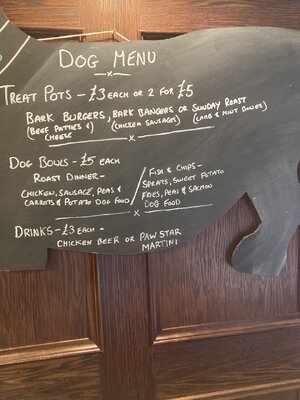 DOG MENU
TREAT POTS - £3 EACH OR 2 FOR £5
BARK BURGERS, BARK BANGERS OR SUNDAY ROAST
(BEEF PATTIES & CHEESE) (CHICKEN SAUSAGES) (LAMB & MINT BONES)
DOG BOWLS - £5 EACH
ROAST DINNER -
CHICKEN, SAUSAGE, PEAS &
CARROTS & POTATO DOG FOOD
FISH & CHIPS -
SPRATS, SWEET POTATO
FRIES, PEAS & SALMON
DOG FOOD
DRINKS - £3 EACH -
CHICKEN BEER OR PAW STAR
MARTINI